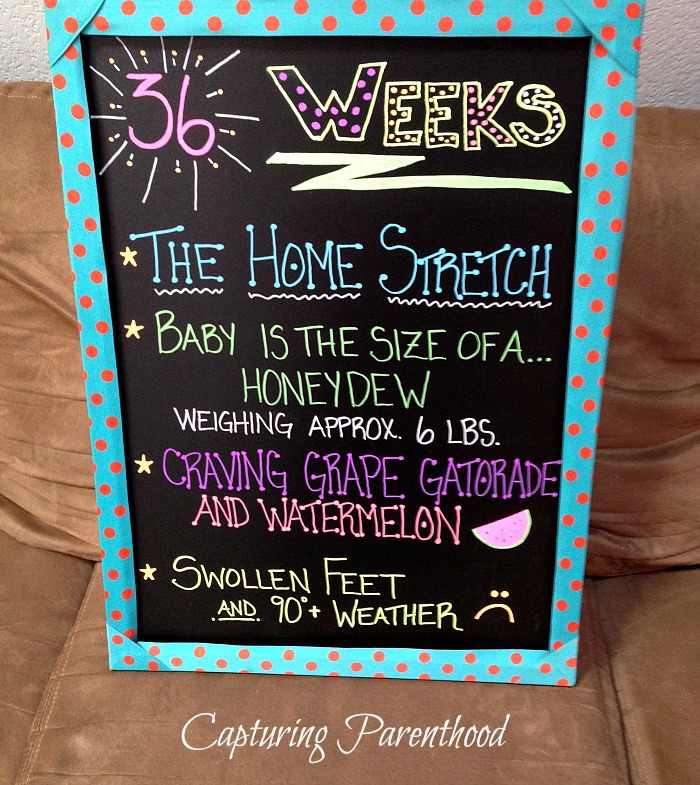 36 WEEKS
THE HOME STRETCH
BABY IS THE SIZE OF A...
HONEYDEW
WEIGHING APPROX. 6 LBS.
CRAVING GRAPE GATORADE
AND WATERMELON
SWOLLEN FEET
AND 90°+ WEATHER
Capturing Parenthood